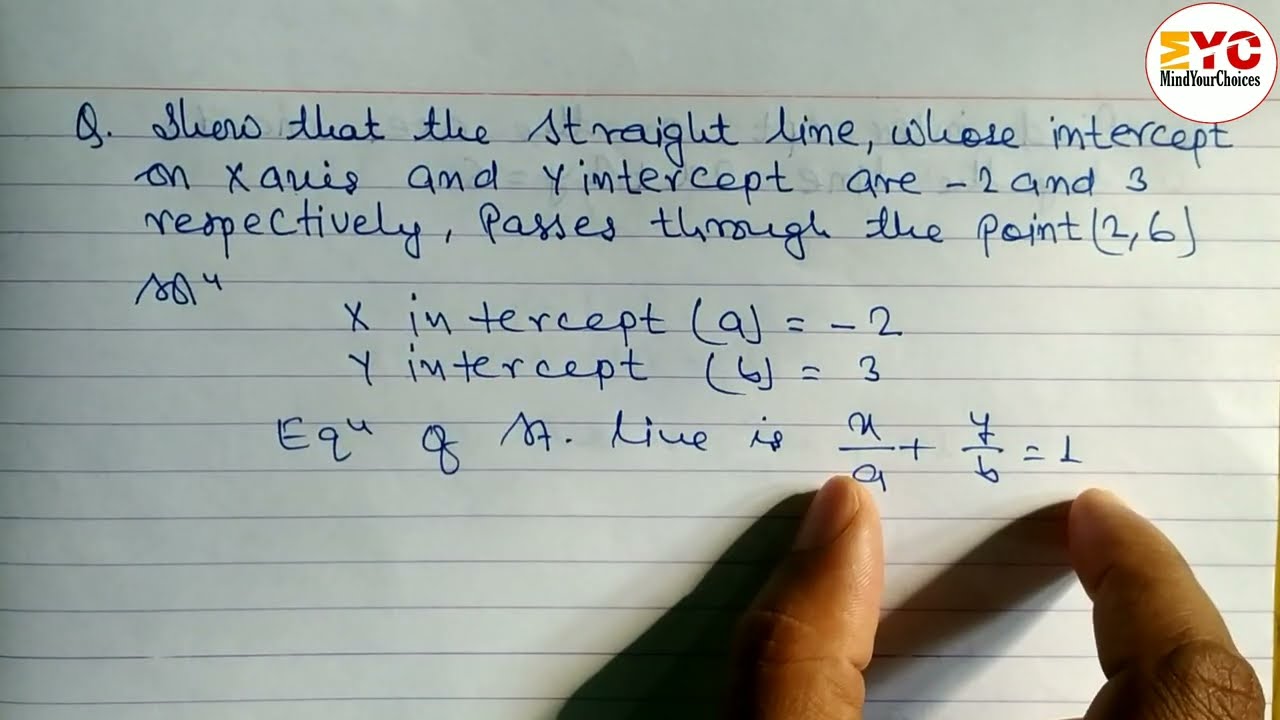 MYC
MindYourChoices
Q. Show that the straight line, whose intercept
on X axis and Y intercept are -2 and 3
respectively, Passes through the point (2,6)
Solⁿ
X intercept (a) = -2
Y intercept (b) = 3
Eqⁿ of St. line is x/a + y/b = 1